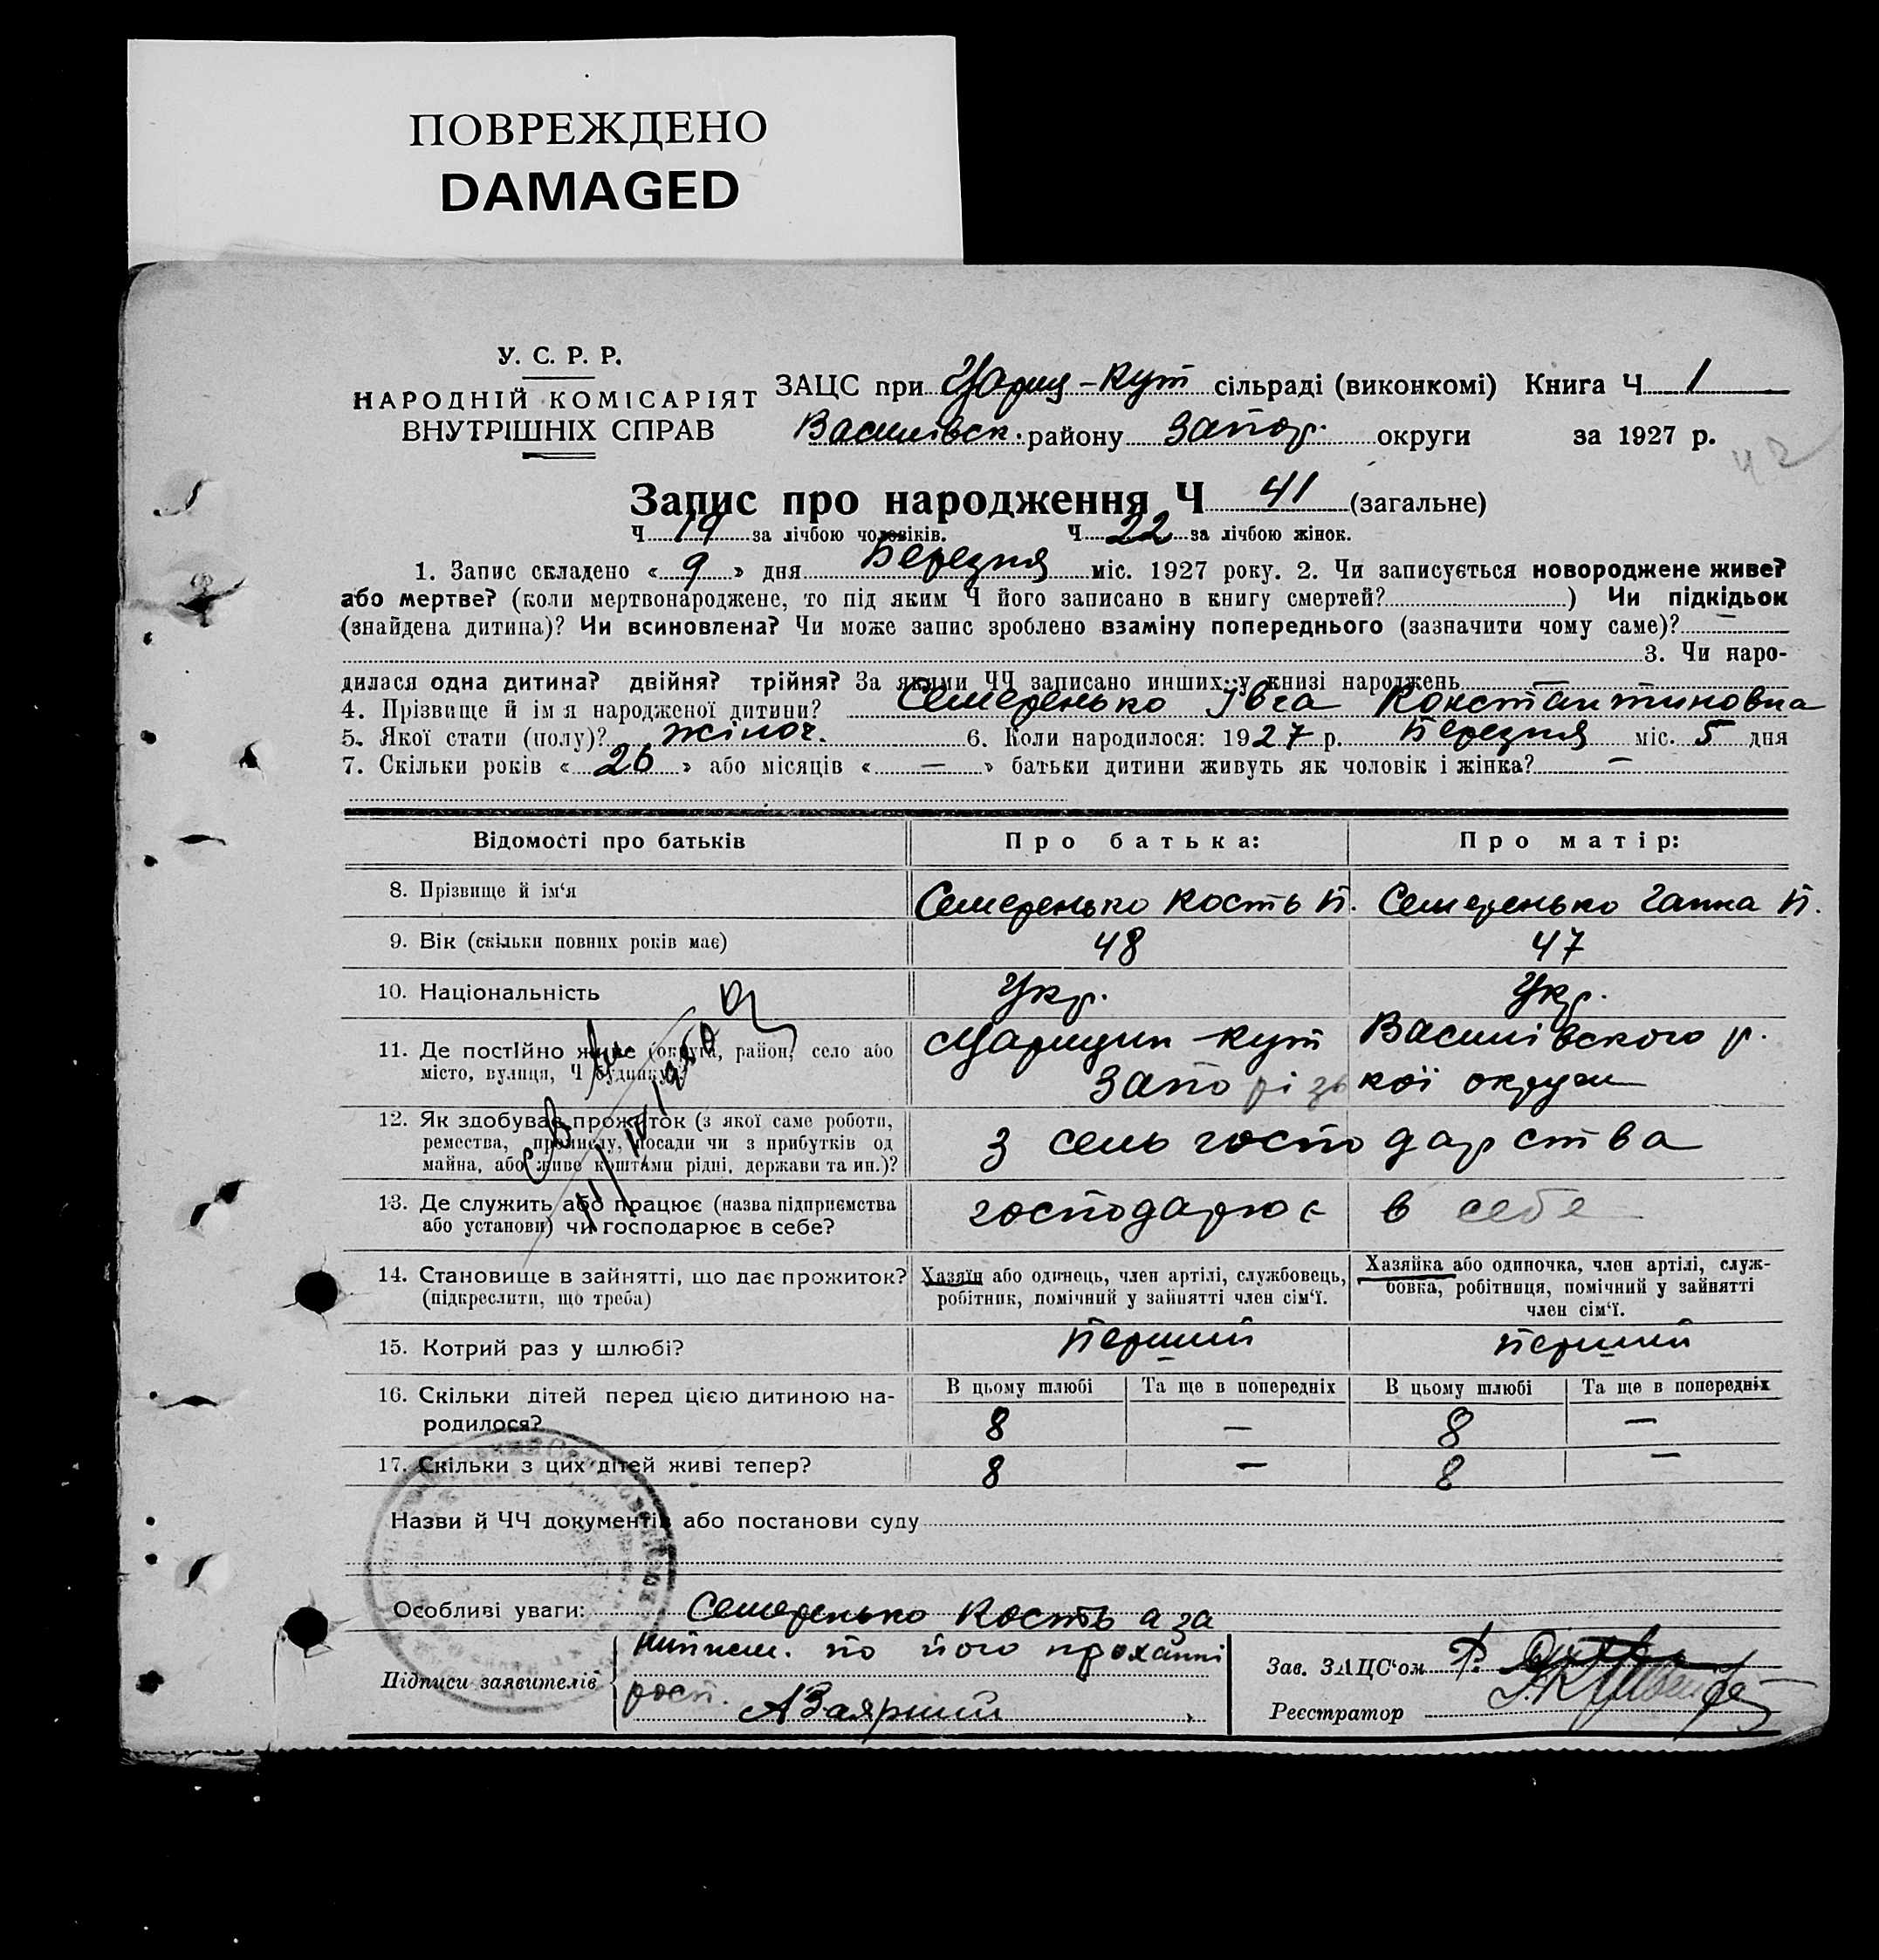 ПОВРЕЖДЕНО
DAMAGED
У. С. Р. Р.
НАРОДНІЙ КОМІСАРІЯТ
ВНУТРІШНІХ СПРАВ
ЗАЦС при Цариц-Кут сільраді (виконкомі) Книга Ч 1
Василівск. району Запор. округи за 1927 р.
42
Запис про народження Ч 41 (загальне)
Ч 19 за лічбою чоловіків. Ч 22 за лічбою жінок.
1. Запис складено « 9 » дня Березня міс. 1927 року. 2. Чи записується новороджене живе?
або мертве? (коли мертвонароджене, то під яким Ч його записано в книгу смертей? ) Чи підкідьок
(знайдена дитина)? Чи всиновлена? Чи може запис зроблено взаміну попереднього (зазначити чому саме)? —
3. Чи наро-
дилася одна дитина? двійня? трійня? За якими ЧЧ записано инших у книзі народжень —
4. Прізвище й ім я народженої дитини? Семеренько Івга Константиновна
5. Якої стати (полу)? жіноч. 6. Коли народилося: 1927 р. Березня міс. 5 дня
7. Скільки років « 26 » або місяців « — » батьки дитини живуть як чоловік і жінка? —
Відомості про батьків Про батька: Про матір:
8. Прізвище й ім'я Семеренько Кость П. Семеренько Ганна П.
9. Вік (скільки повних років має) 48 47
10. Національність Укр. Укр.
11. Де постійно живе (округа, район, село або Царицин-Кут Василівского р.
місто, вулиця, Ч будинку)? Запорізької округи
12. Як здобуває прожиток (з якої саме роботи,
ремества, промислу, посади чи з прибутків од з сель господарства
майна, або живе коштами рідні, держави та ин.)?
13. Де служить або працює (назва підприємства господарює в себе
або установи) чи господарює в себе?
14. Становище в зайнятті, що дає прожиток? Хазяїн або одинець, член артілі, службовець, Хазяйка або одиночка, член артілі, служ-
(підкреслити, що треба) робітник, помічний у зайнятті член сім'ї. бовка, робітниця, помічний у зайнятті
член сім'ї.
15. Котрий раз у шлюбі? перший перший
16. Скільки дітей перед цією дитиною на- В цьому шлюбі Та ще в попередніх В цьому шлюбі Та ще в попередніх
родилося? 8 — 8 —
17. Скільки з цих дітей живі тепер? 8 — 8 —
Назви й ЧЧ документів або постанови суду
Особливі уваги: Семеренько Кость а за
по його проханні
Підписи заявителів расп. А Заярний
Зав. ЗАЦС'ом
Реєстратор